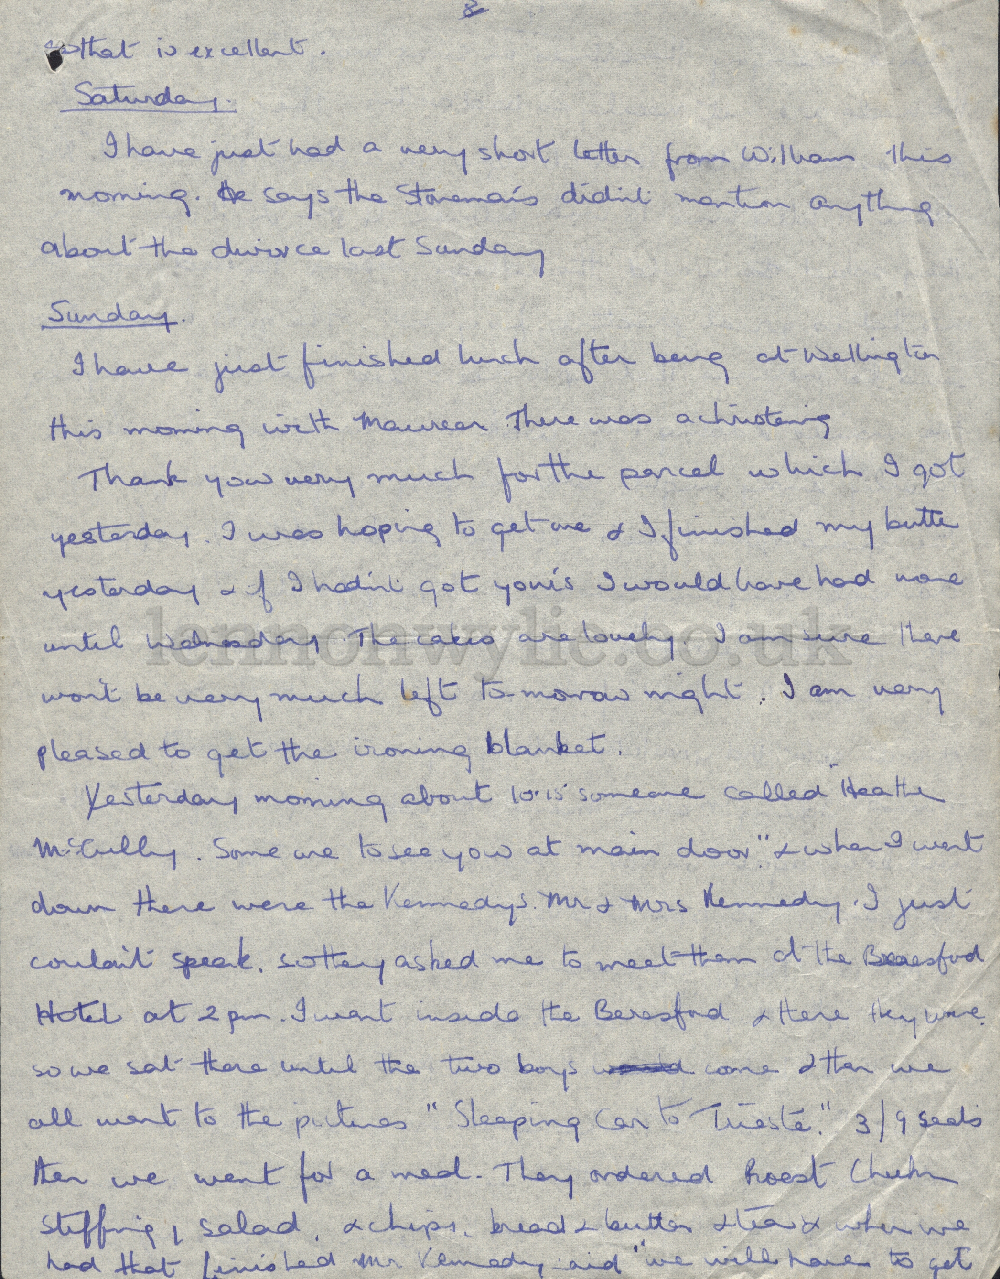 8
so that is excellent.
Saturday.
I have just had a very short letter from William this
morning. He says the didn't mention anything
about the divorce last Sunday
Sunday.
I have just finished lunch after being at Wellington
this morning with Maureen. There was a christening
Thank you very much for the parcel which I got
yesterday. I was hoping to get one & I finished my butter
yesterday & if I hadn't got your's I would have had none
until Wednesday The cakes are lovely I am sure there
won't be very much left to-morrow night. I am very
pleased to get the ironing blanket.
Yesterday morning about 10.15 someone called "Heather
McCully. Some one to see you at main door." & when I went
down there were the Kennedys. Mr & Mrs Kennedy. I just
couldn't speak, so they asked me to meet them at the Beresford
Hotel at 2 pm. I went inside the Beresford & there they were
so we sat there until the two boys come & then we
all went to the pictures "Sleeping Car to Trieste." 3/9 seats
then we went for a meal. They ordered Roast Chicken
stuffing, salad, & chips, bread & butter & tea & when we
had that finished Mr Kennedy said "we will have to get
lennonwylie.co.uk